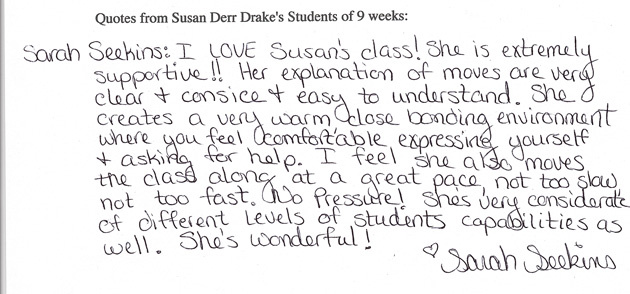 Quotes from Susan Derr Drake's Students of 9 weeks:
Sarah Seekins: I LOVE Susan's class! She is extremely
supportive!! Her explanation of moves are very
clear + consice + easy to understand. She
creates a very warm close bonding environment
where you feel comfortable expressing yourself
+ asking for help. I feel she also moves
the class along at a great pace, not too slow
not too fast. (No Pressure! She's very considerate
of different levels of students capabilities as
well. She's wonderful!
♡ Sarah Seekins